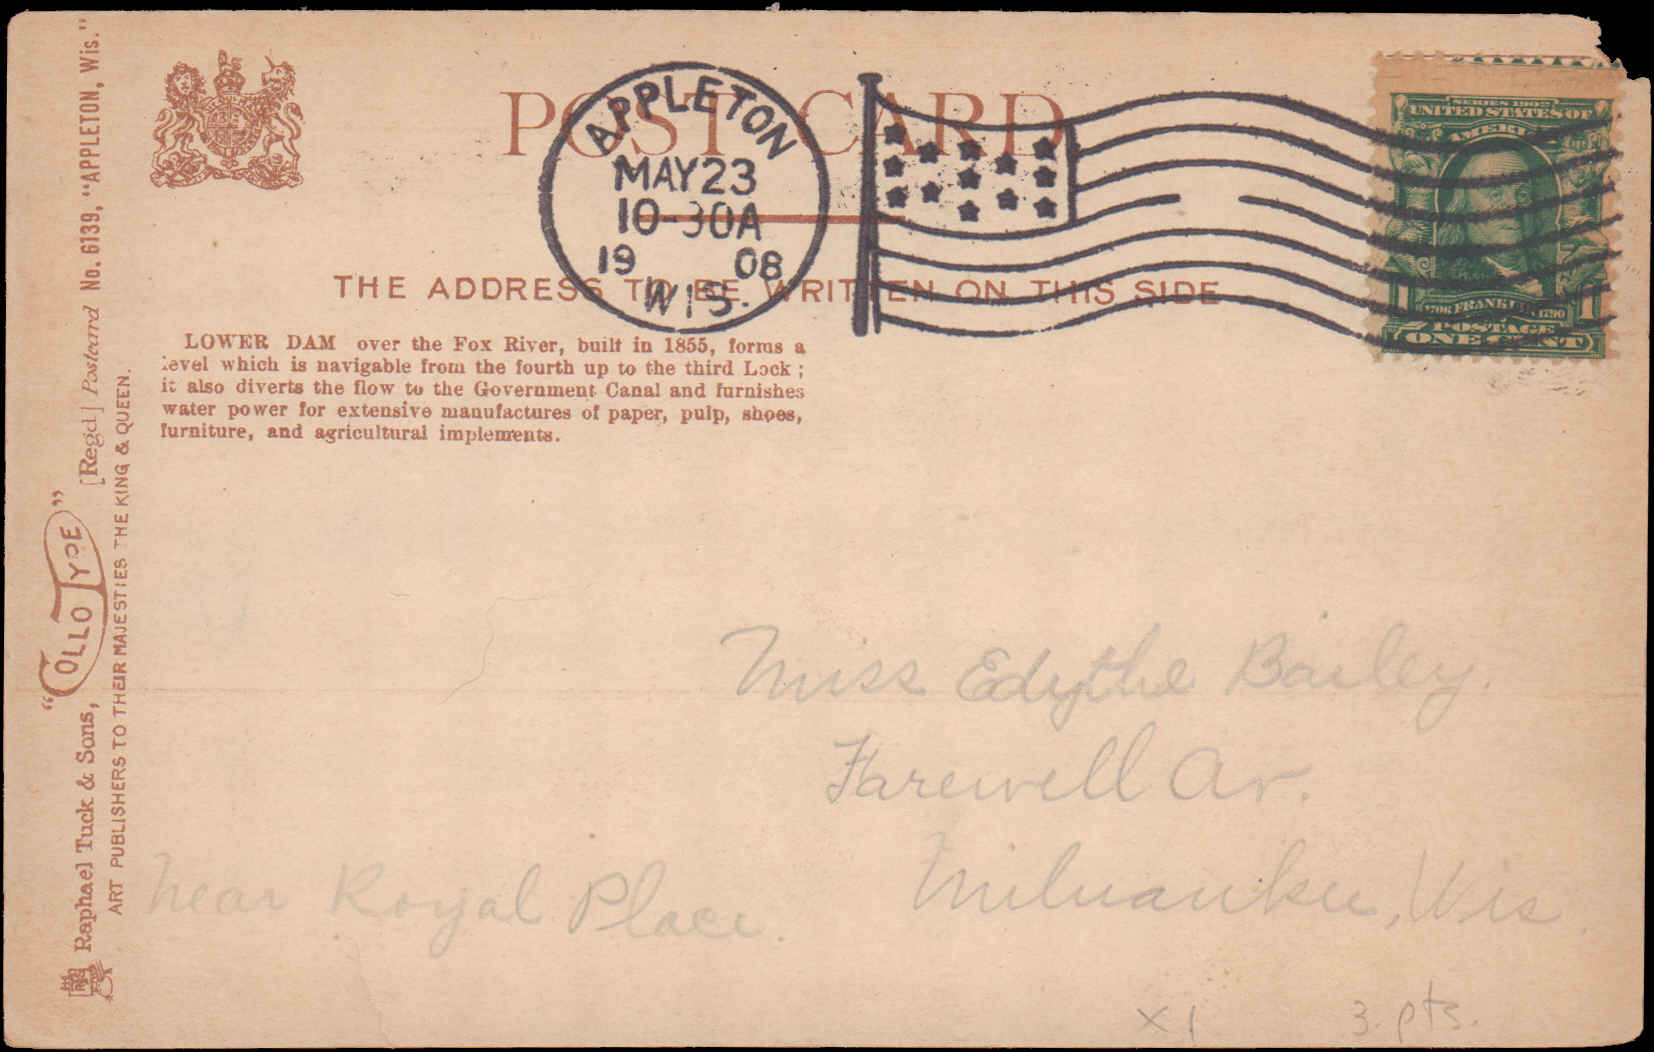 POST CARD
APPLETON
MAY 23
10-30A
19 08
WIS.
SERIES 1902
UNITED STATES OF
AMERICA
1 1706 FRANKLIN 1790 1
POSTAGE
ONE CENT
THE ADDRESS TO BE WRITTEN ON THIS SIDE
LOWER DAM over the Fox River, built in 1855, forms a
level which is navigable from the fourth up to the third Lock;
it also diverts the flow to the Government Canal and furnishes
water power for extensive manufactures of paper, pulp, shoes,
furniture, and agricultural implements.
Raphael Tuck & Sons, "COLLOTYPE" [Regd] Postcard No. 6139, "APPLETON, Wis."
ART PUBLISHERS TO THEIR MAJESTIES THE KING & QUEEN.
Miss Edythe Bailey.
Farewell Av.
Milwaukee, Wis.
Near Royal Place.
X1 3 pts.